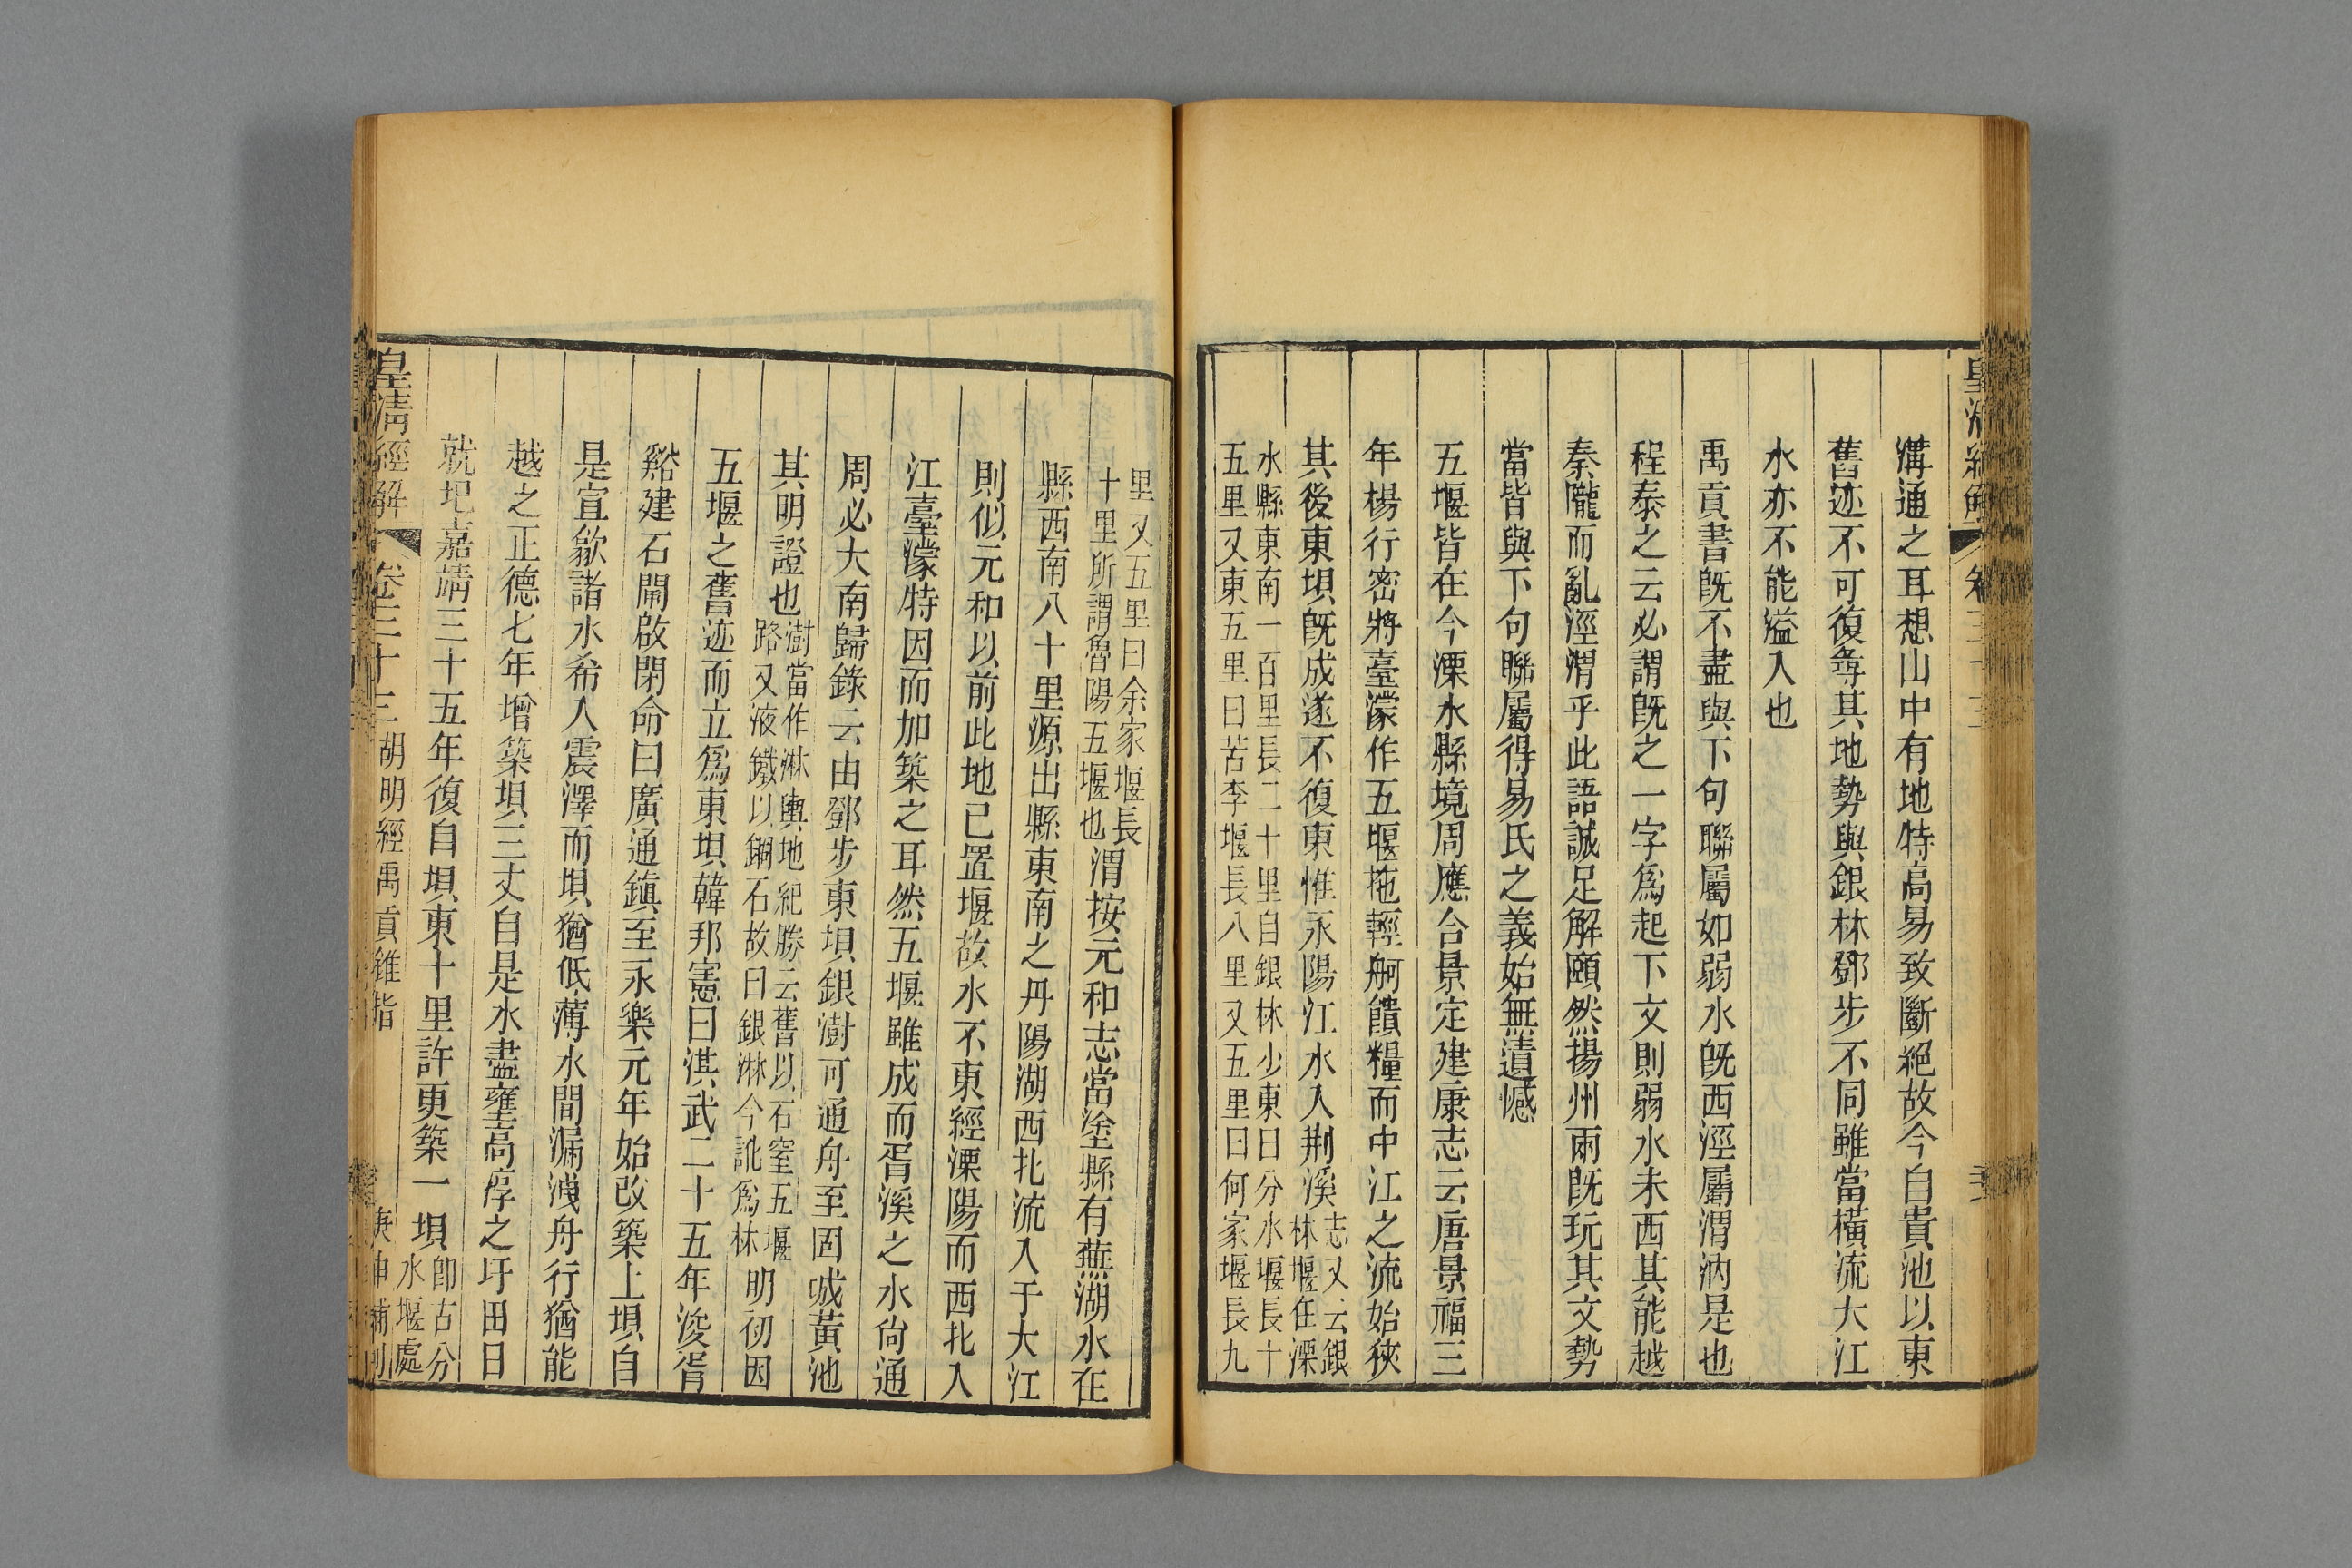 皇清經解 卷三十三
溝通之耳想山中有地特高易致斷絕故今自貴池以東
舊迹不可復尋其地勢與銀林鄧步不同雖當橫流大江
水亦不能溢入也
禹貢書旣不盡與下句聯屬如弱水旣西涇屬渭汭是也
程泰之云必謂旣之一字爲起下文則弱水未西其能越
秦隴而亂涇渭乎此語誠足解頤然揚州兩旣玩其文勢
當皆與下句聯屬得易氏之義始無遺憾
五堰皆在今溧水縣境周應合景定建康志云唐景福三
年楊行密將臺濛作五堰拖輕舸饋糧而中江之流始狹
其後東壩旣成遂不復東惟永陽江水入荆溪志又云銀林堰在溧
水縣東南一百里長二十里自銀林少東曰分水堰長十
五里又東五里曰苦李堰長八里又五里曰何家堰長九
里又五里曰余家堰長
十里所謂魯陽五堰也渭按元和志當塗縣有蕪湖水在
縣西南八十里源出縣東南之丹陽湖西北流入于大江
則似元和以前此地已置堰故水不東經溧陽而西北入
江臺濛特因而加築之耳然五堰雖成而胥溪之水尙通
周必大南歸錄云由鄧步東壩銀澍可通舟至固城黃池
其明證也澍當作淋輿地紀勝云舊以石窒五堰路又液鐵以錮石故曰銀淋今訛爲林明初因
五堰之舊迹而立爲東壩韓邦憲曰洪武二十五年浚胥
谿建石閘啟閉命曰廣通鎮至永樂元年始改築上壩自
是宣歙諸水希入震澤而壩猶低薄水間漏洩舟行猶能
越之正德七年增築壩三丈自是水盡壅高淳之圩田日
就圮嘉靖三十五年復自壩東十里許更築一壩卽古分水堰處
皇清經解 卷三十三 胡明經禹貢錐指 庚申補刊